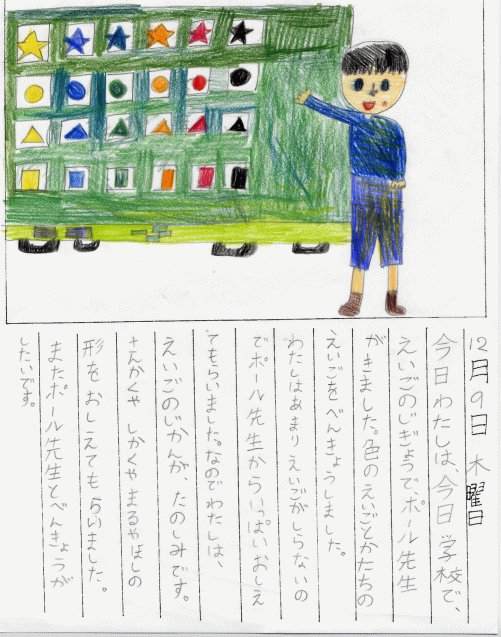 12月9日 木曜日
今日わたしは、今日学校で、
えいごのじぎょうでポール先生
がきました。色のえいごとかたちの
えいごをべんきょうしました。
わたしはあまりえいごがしらないの
でポール先生からいっぱいおしえ
てもらいました。なのでわたしは、
えいごのじかんが、たのしみです。
さんかくや しかくやまるやほしの
形を おしえてもらいました。
またポール先生とべんきょうが
したいです。